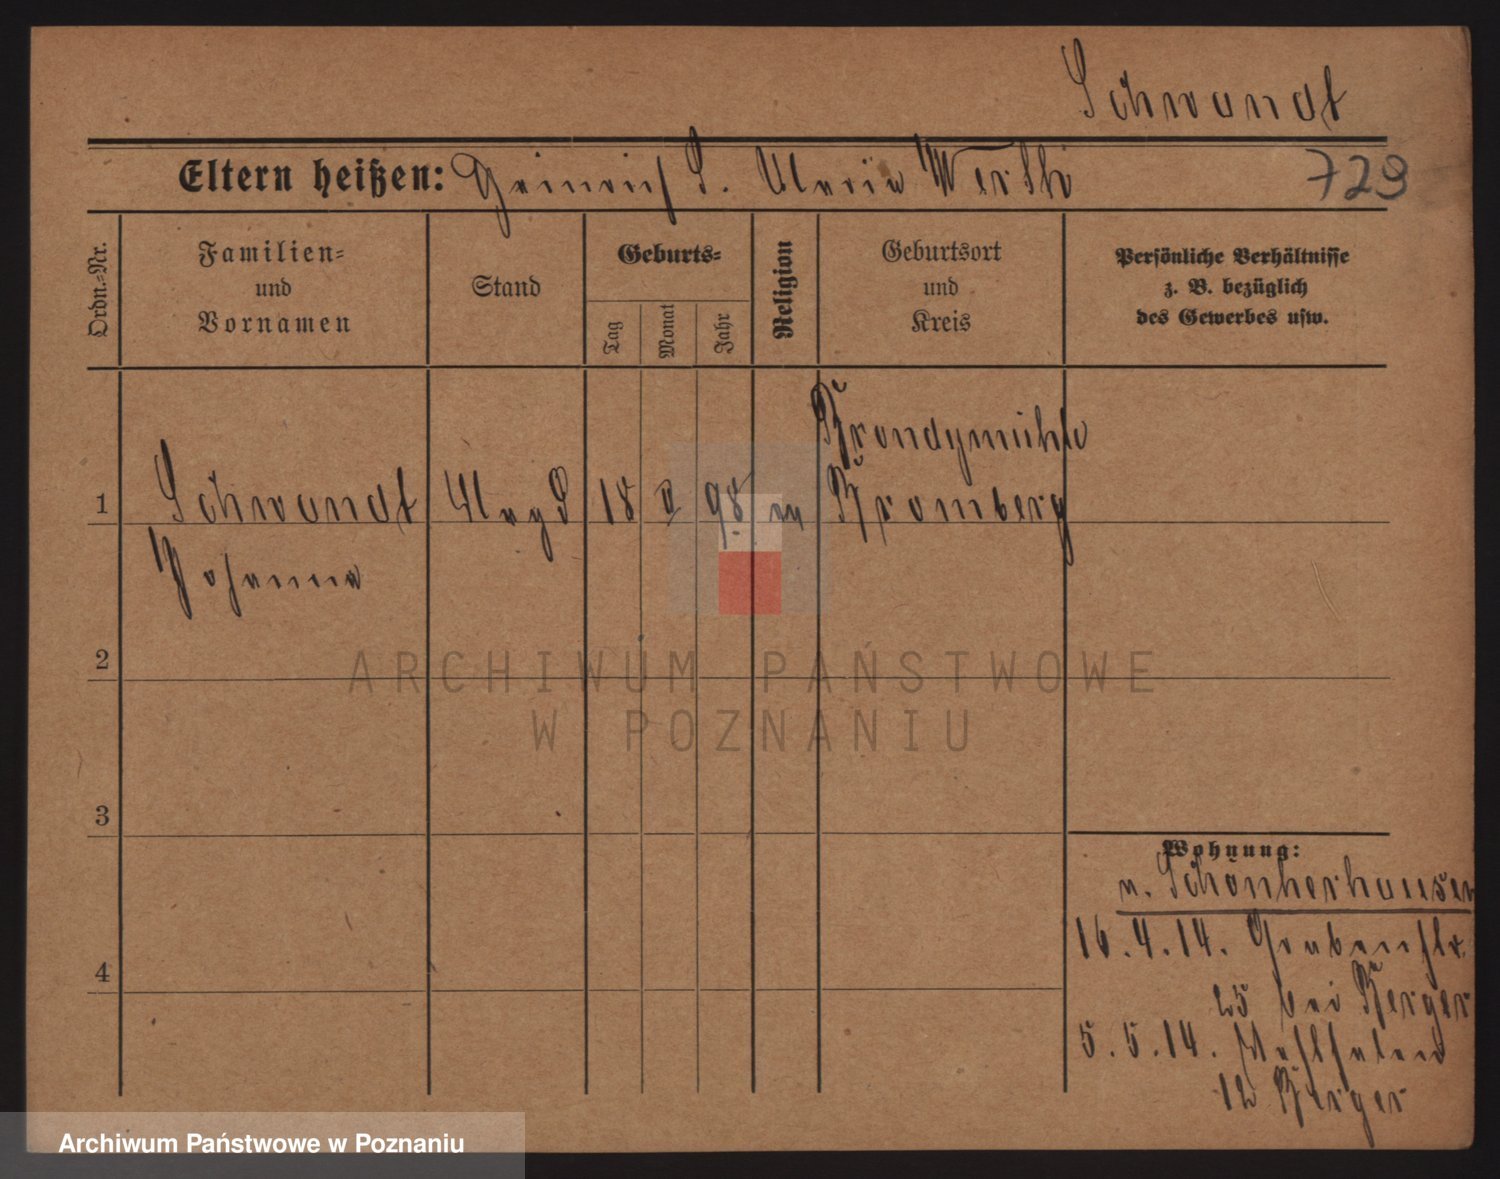 Schwandt
Eltern heißen: Heinrich S. Maria Werth
729
Ordn.-Nr.
Familien-
und
Vornamen
Stand
Geburts-
Tag
Monat
Jahr
Religion
Geburtsort
und
Kreis
Persönliche Verhältnisse
z. B. bezüglich
des Gewerbes usw.
Brondymühle
1 Schwandt Magd 18 II 98 ev Bromberg
Johanna
2
3
4
Wohnung:
n. Schönherhausen
16.4.14. Grabenstr.
25 bei Berger
5.5.14.
12 Berger
ARCHIWUM PAŃSTWOWE
W POZNANIU
Archiwum Państwowe w Poznaniu